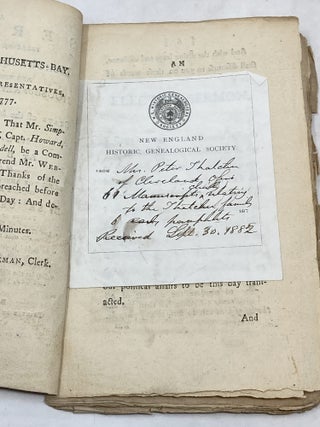 HUSETTS-BAY,
REPRESENTATIVES,
1777.
That Mr. Simp-
Capt. Howard,
dell, be a Com-
rend Mr. WEB-
Thanks of the
reached before
Day: And de-
Minutes.
EMAN, Clerk.
AN
NEW ENGLAND
HISTORIC, GENEALOGICAL SOCIETY
FROM Mrs. Peter Thatcher
of Cleveland, Ohio
61 Manuscripts relating
to the Thatcher family
6 early pamphlets 187
Received Sept. 30. 1882
our political affairs to be this day tran-
acted.
And